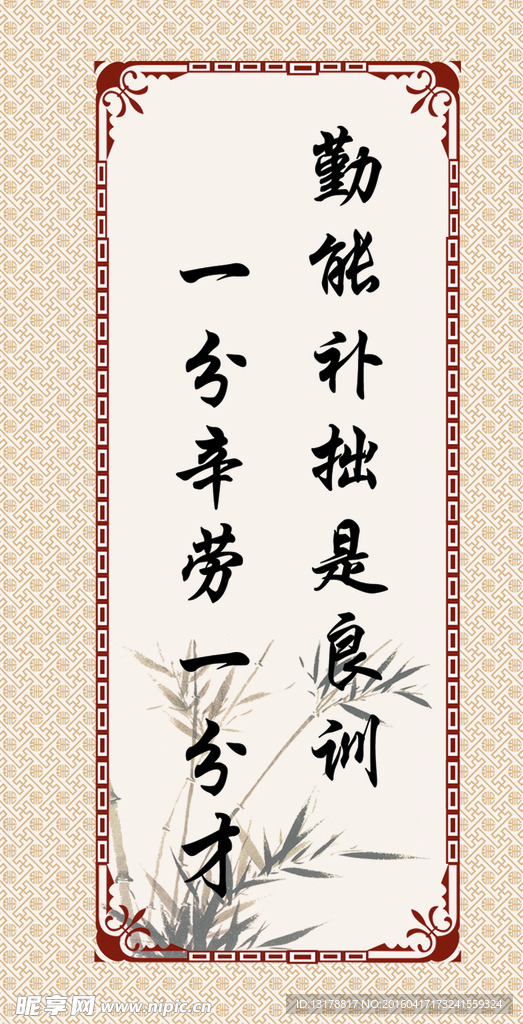 勤能补拙是良训
一分辛劳一分才
昵享网 www.nipic.cn
ID:13178817 NO:20160417173241559324